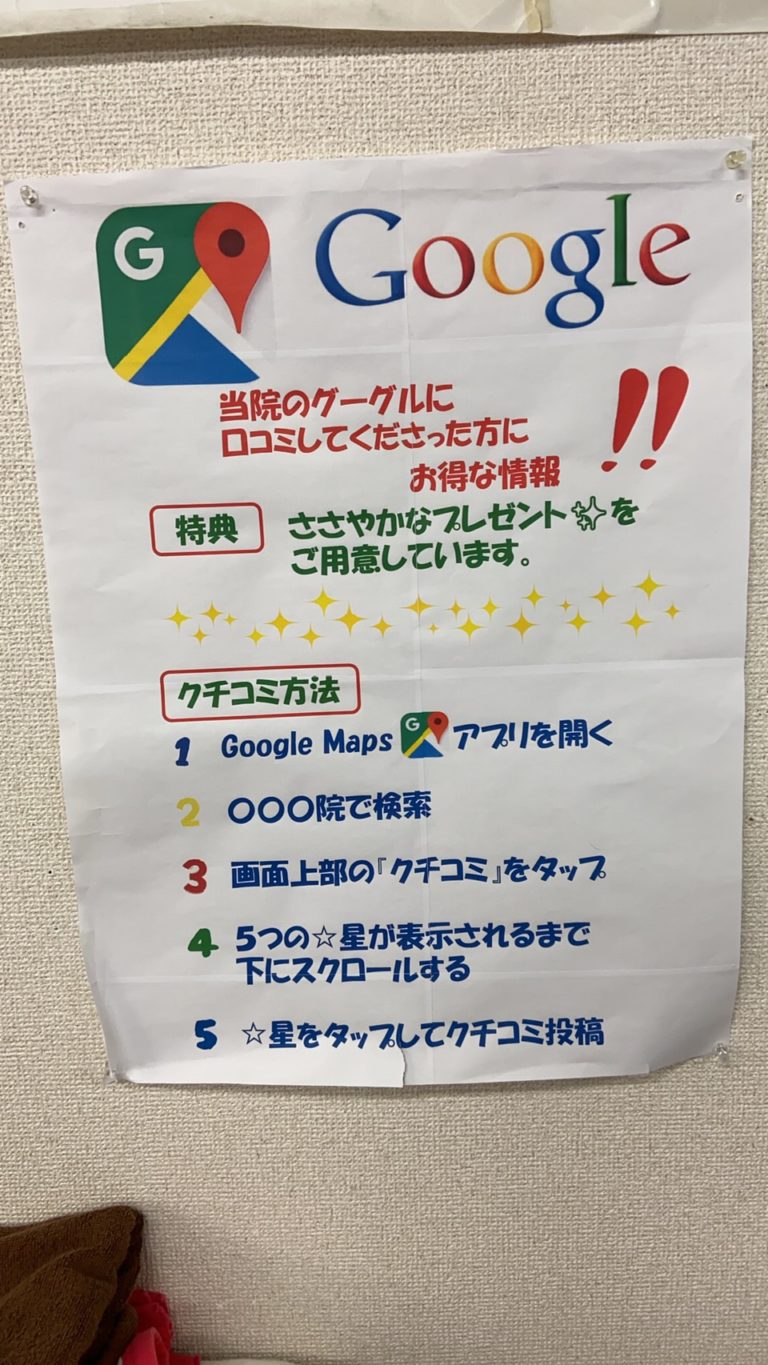 G
Google
当院のグーグルに
口コミしてくださった方に
お得な情報
!!
特典
ささやかなプレゼント✨を
ご用意しています。
クチコミ方法
1 Google Maps G アプリを開く
2 〇〇〇院で検索
3 画面上部の『クチコミ』をタップ
4 5つの☆星が表示されるまで
下にスクロールする
5 ☆星をタップしてクチコミ投稿